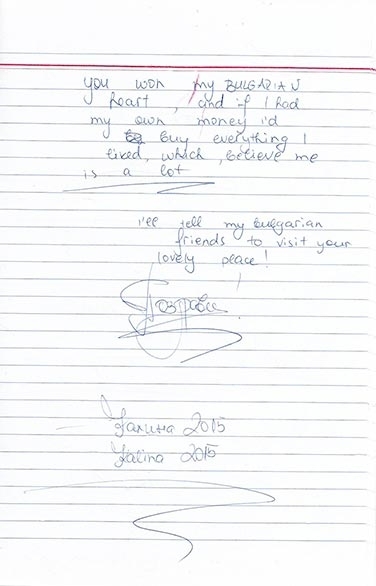 you won my BULGARIAN
heart, and if I had
my own money i'd
buy everything I
liked, which, believe me
is a lot
i'll tell my bulgarian
friends to visit your
lovely place!
Калина 2015
Kalina 2015